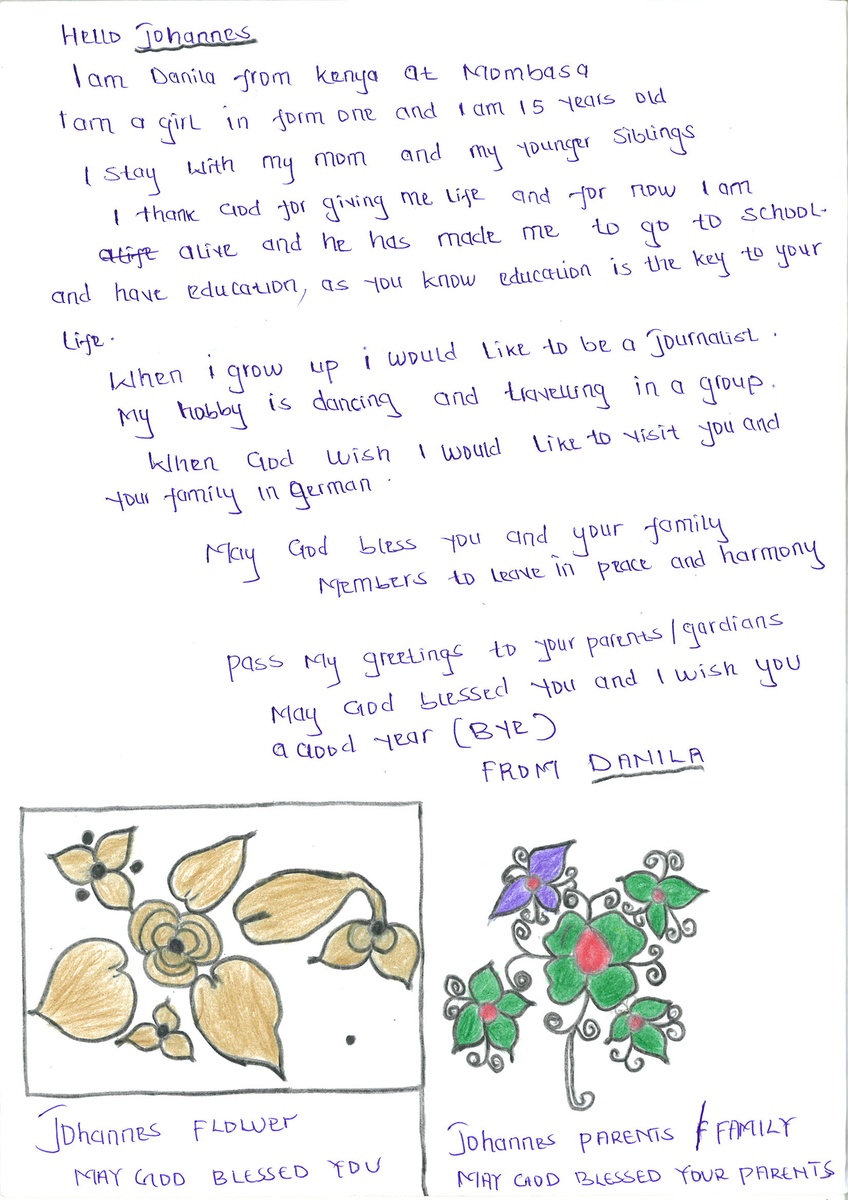 Hello Johannes
I am Danila from Kenya at Mombasa
I am a girl in form one and I am 15 years old
I stay with my mom and my younger siblings
I thank God for giving me life and for now I am
alive and he has made me to go to school.
and have education, as you know education is the key to your
life.
When i grow up i would like to be a Journalist.
My hobby is dancing and travelling in a group.
When God wish I would like to visit you and
your family in German.
May God bless you and your family
Members to leave in peace and harmony
Pass My greetings to your parents/gardians
May God blessed you and I wish you
a Good year (BYE)
FROM DANILA
Johannes FLOWER
MAY GOD BLESSED YOU
Johannes PARENTS / FAMILY
MAY GOD BLESSED YOUR PARENTS